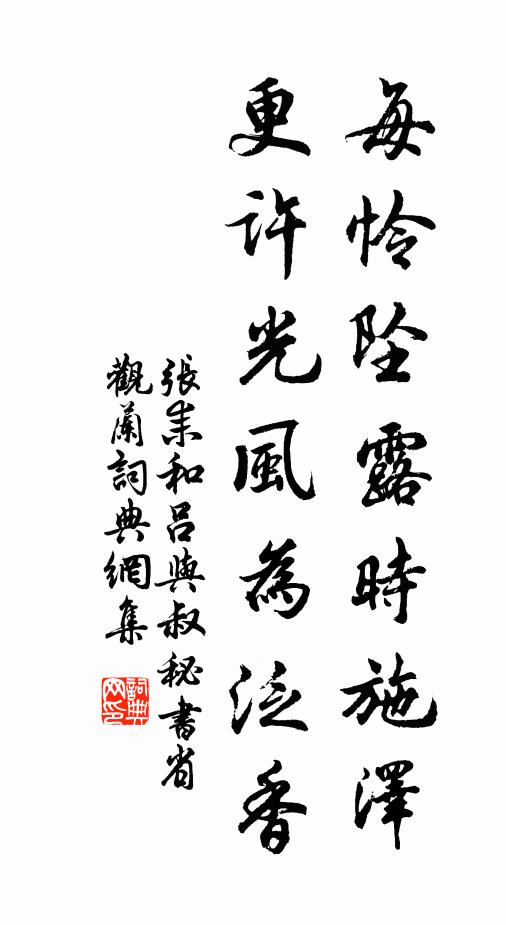 每怜墜露時施澤
更許光風為泛香
張耒和呂與叔秘書省
觀蘭詞典網集
詞典
网印